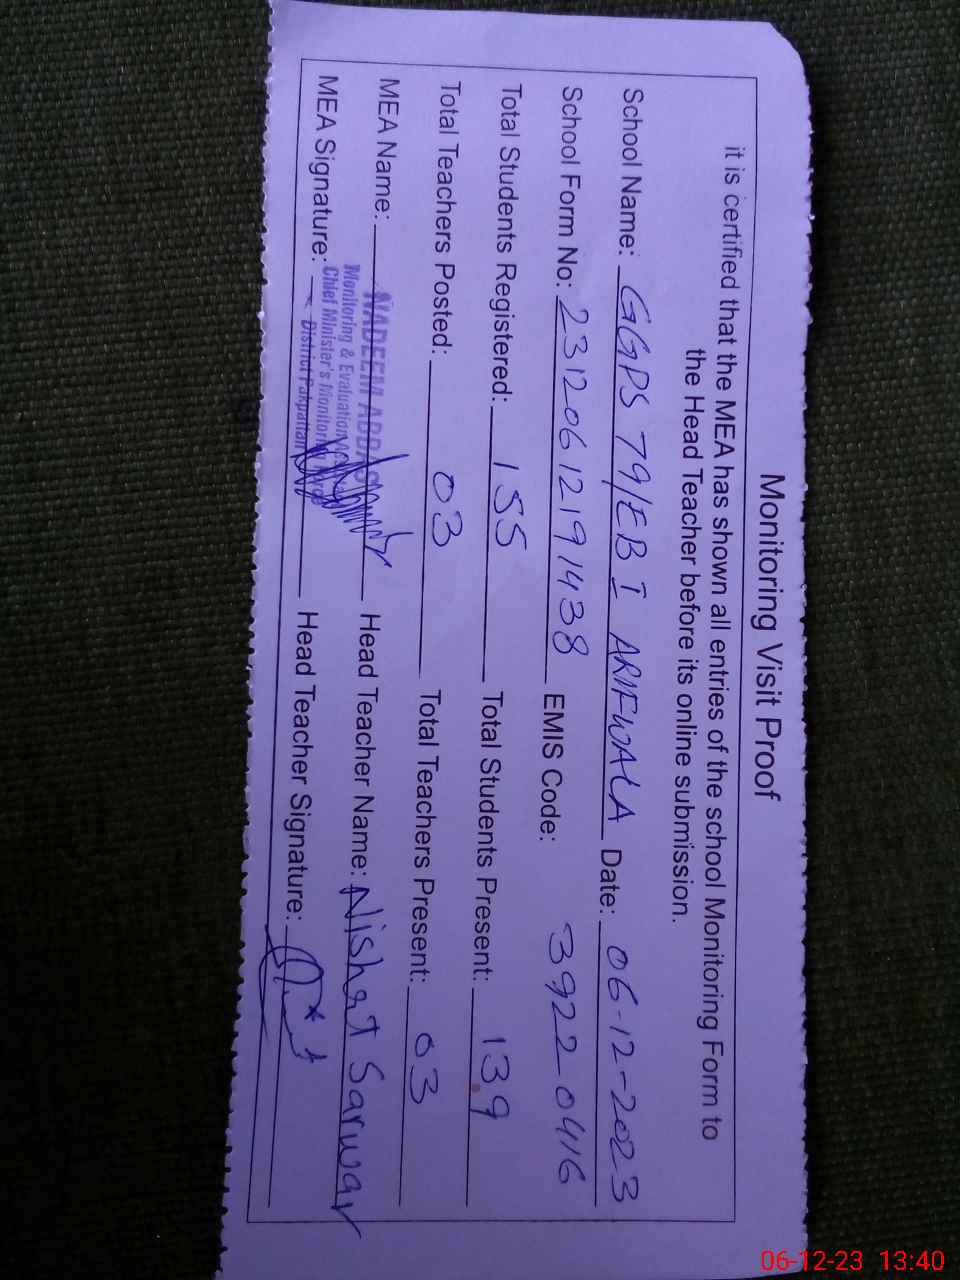 Monitoring Visit Proof
it is certified that the MEA has shown all entries of the school Monitoring Form to
the Head Teacher before its online submission.
School Name: GGPS 79/EB I ARIFWALA Date: 06-12-2023
School Form No: 23120612191438 EMIS Code: 39220416
Total Students Registered: 155 Total Students Present: 139
Total Teachers Posted: 03 Total Teachers Present: 03
MEA Name: NADEEM Head Teacher Name: Nishat Sarwar
Monitoring & Evaluation
Chief Minister's Monitoring
MEA Signature: District Pakpattan Head Teacher Signature:
06-12-23 13:40